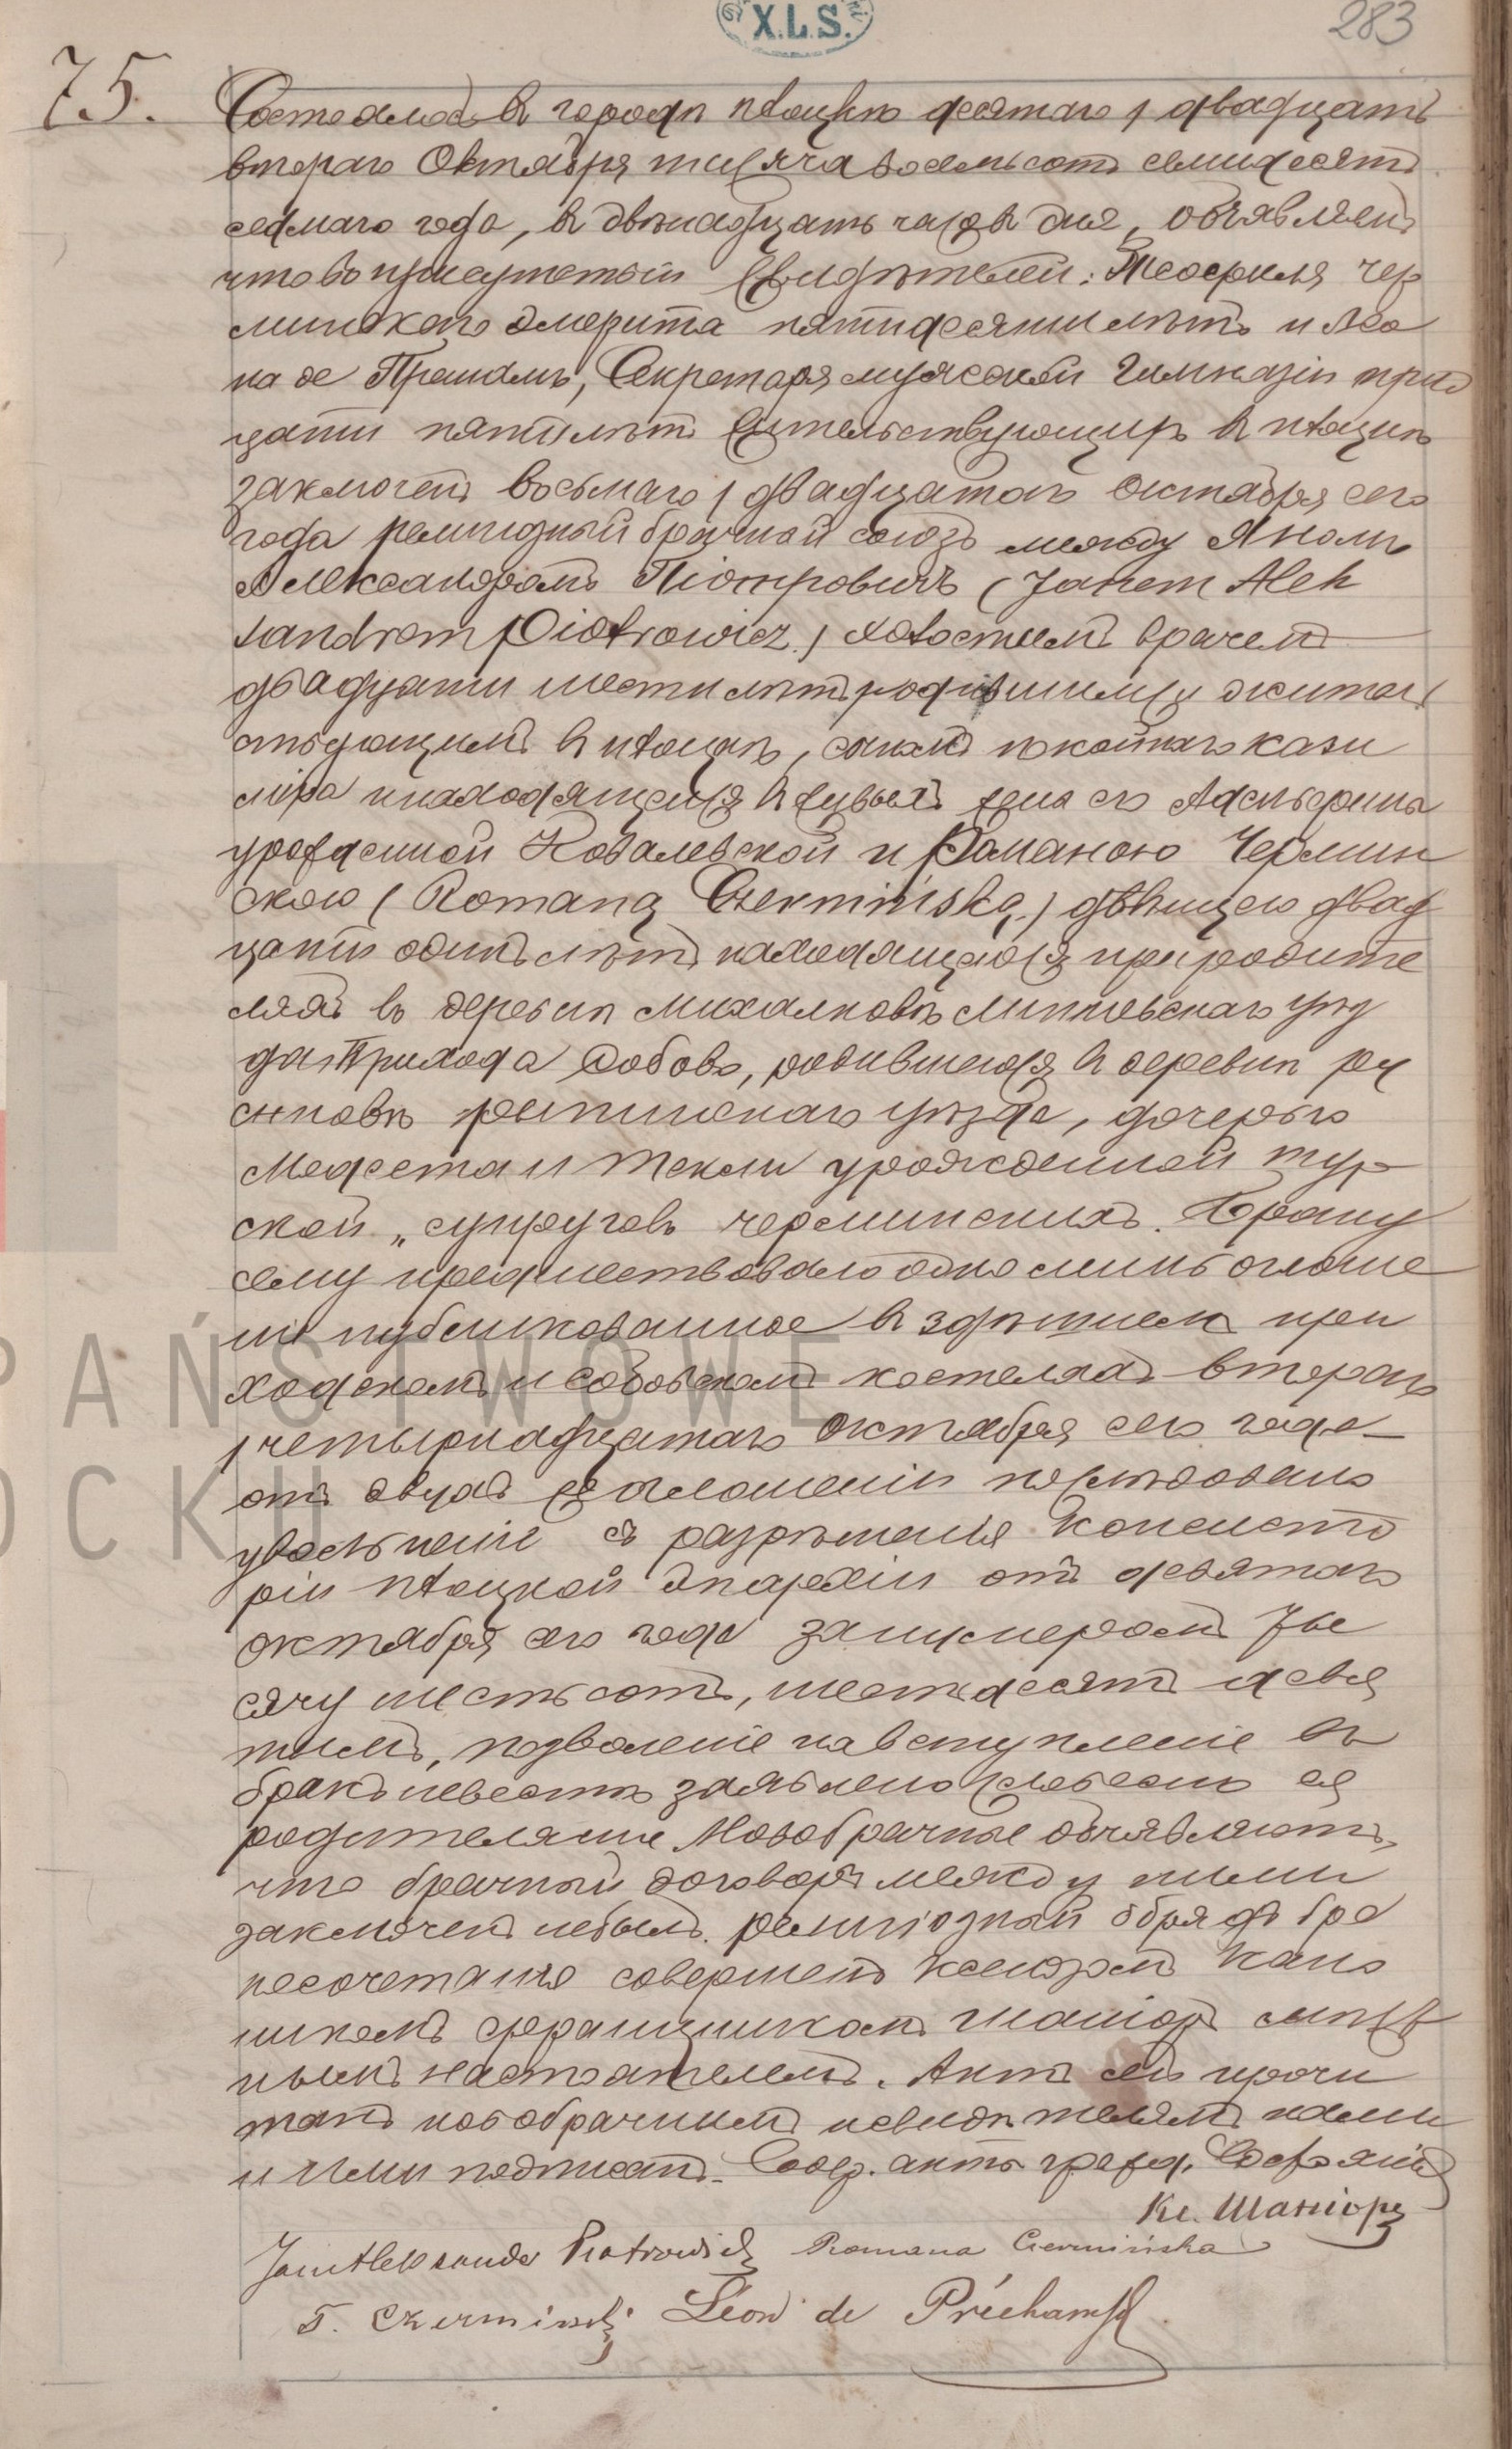 X.L.S.
283
75.
Состоялось въ городѣ Плоцкѣ десятаго / двадцать
втораго Октября тысяча восемьсотъ семидесятъ
седмаго года, въ двѣнадцать часовъ дня, объявляемъ
что во присутствіи Свидѣтелей: Теофиля Чер
минскаго эмерита пятидесяти лѣтъ и Лео
на де Прешамъ, Секретаря мужской Гимназіи трид
цати пяти лѣтъ жительствующихъ въ Плоцкѣ
заключенъ восьмаго / двадцатаго Октября сего
года религіозный брачный союзъ между Яномъ
Александромъ Піотровичъ (Janem Alek
sandrem Piotrowicz) холостымъ врачемъ
двадцати шести лѣтъ родившимся жительс
твующимъ въ Плоцкѣ, сыномъ покойнаго Кази
міра и находящейся въ живыхъ жены его
урожденной Ковалевской и Романою Чермин
скою (Romaną Czermińską) дѣвицею двад
цати одинъ лѣтъ находящаюся при родите
ляхъ въ деревнѣ Михалковѣ Липновскаго уѣз
да Прихода Собово, родившеюся въ деревнѣ
уѣзда, дочерью
Модеста и Текли урожденной Тур
ской „ супруговъ Черминскихъ. Браку
сему предшествовало одно лишь оглаше
ніе публикованное въ здѣшнемъ при
ходскомъ и Собовскомъ костелахъ втораго
/ четырнадцатаго Октября сего года
отъ двухъ оглашеній послѣдовало
увольненіе съ разрѣшенія Консисто
ріи Плоцкой Эпархіи отъ девятаго
Октября сего года за нумеромъ Ты
сячу шестьсотъ, шестьдесятъ девя
тымъ, позволеніе на вступленіе въ
бракъ невѣстѣ заявлено словесно ея
родителями Новобрачные объявляютъ
что брачный договоръ между ними
заключенъ небылъ. религіозный обрядъ бра
косочетанія совершенъ Ксендзомъ Кано
никомъ Францишкомъ Шаніоръ мѣст
нымъ настоятелемъ. Актъ сей прочи
танъ новобрачнымъ и свидѣтелямъ нами
и ими подписанъ. Содер. акты гражд. Состоянія
Кс. Шаніоръ
Jan Aleksander Piotrowicz Romana Czermińska
T. Czermiński Léon de Préchamps
PAŃSTWOWE
OCKU